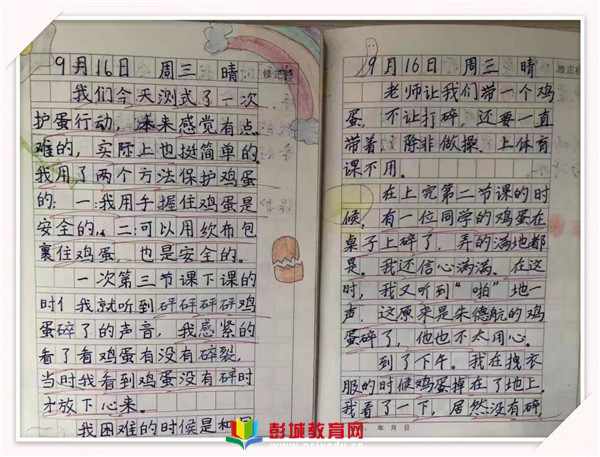 9月16日 周三 晴
我们今天测式了一次
护蛋行动,本来感觉有点
难的,实际上也挺简单的
我用了两个方法保护鸡蛋
的:一:我用手握住鸡蛋是
安全的、二:可以用软布包
裹住鸡蛋,也是安全的。
一次第三节课下课的
时 我就听到砰砰砰砰鸡
蛋碎了的声音,我感紧的
看了看鸡蛋有没有碎裂,
当时我看到鸡蛋没有碎时
才放下心来。
我困难的时候是和
9月16日 周三 晴
老师让我们带一个鸡
蛋,不让打碎,还要一直
带着,除非做操、上体育
课不用。
在上完第二节课的时
候,有一位同学的鸡蛋在
桌子上碎了,弄的满地都
是。我还信心满满。在这
时,我又听到“啪”地一
声,这原来是朱德航的鸡
蛋碎了,他也不太用心。
到了下午。我在拽衣
服的时候鸡蛋掉在了地上,
我看了一下,居然没有碎
年 月 日
彭城教育网